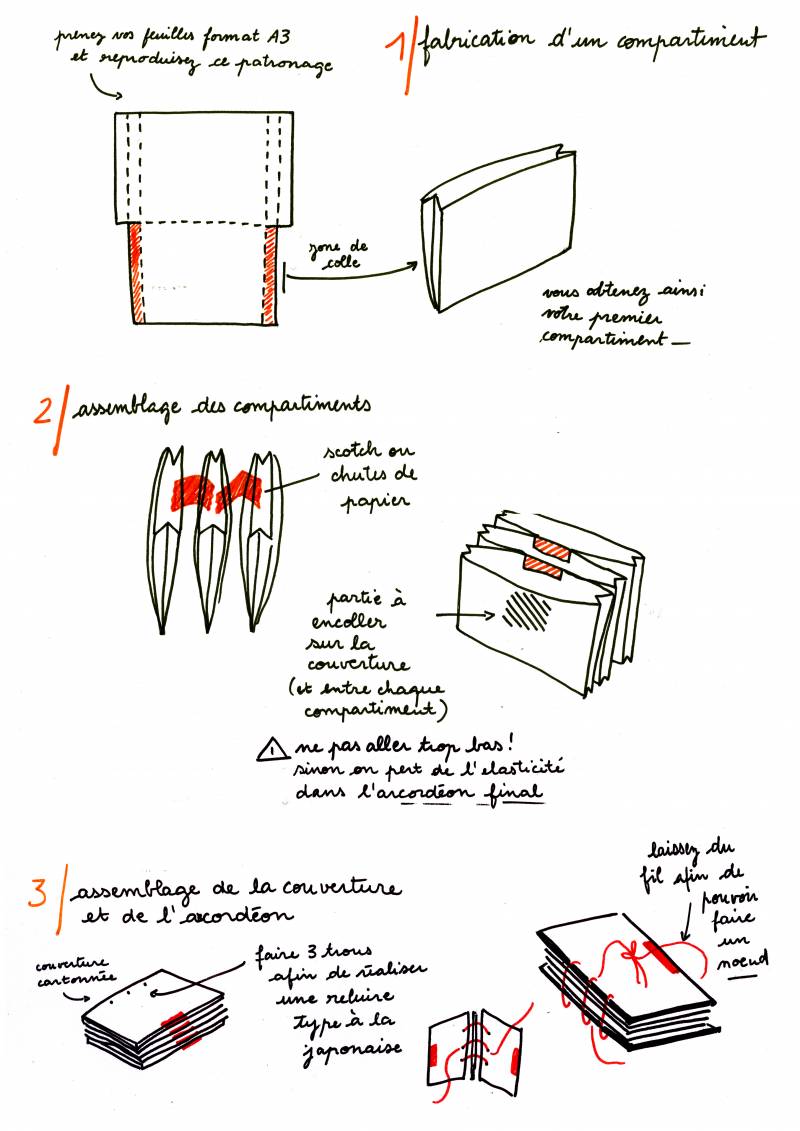 prenez vos feuilles format A3
et reproduisez ce patronage
1/ fabrication d'un compartiment
zone de
colle
vous obtenez ainsi
votre premier
compartiment _
2/ assemblage des compartiments
scotch ou
chutes de
papier
partie à
encoller
sur la
couverture
(et entre chaque
compartiment)
! ne pas aller trop bas!
sinon on pert de l'elasticité
dans l'arcordéon final
3/ assemblage de la couverture
et de l'accordéon
couverture
cartonnée
faire 3 trous
afin de réaliser
une reluire
type à la
japonaise
laissez du
fil afin de
pouvoir
faire
un
noeud